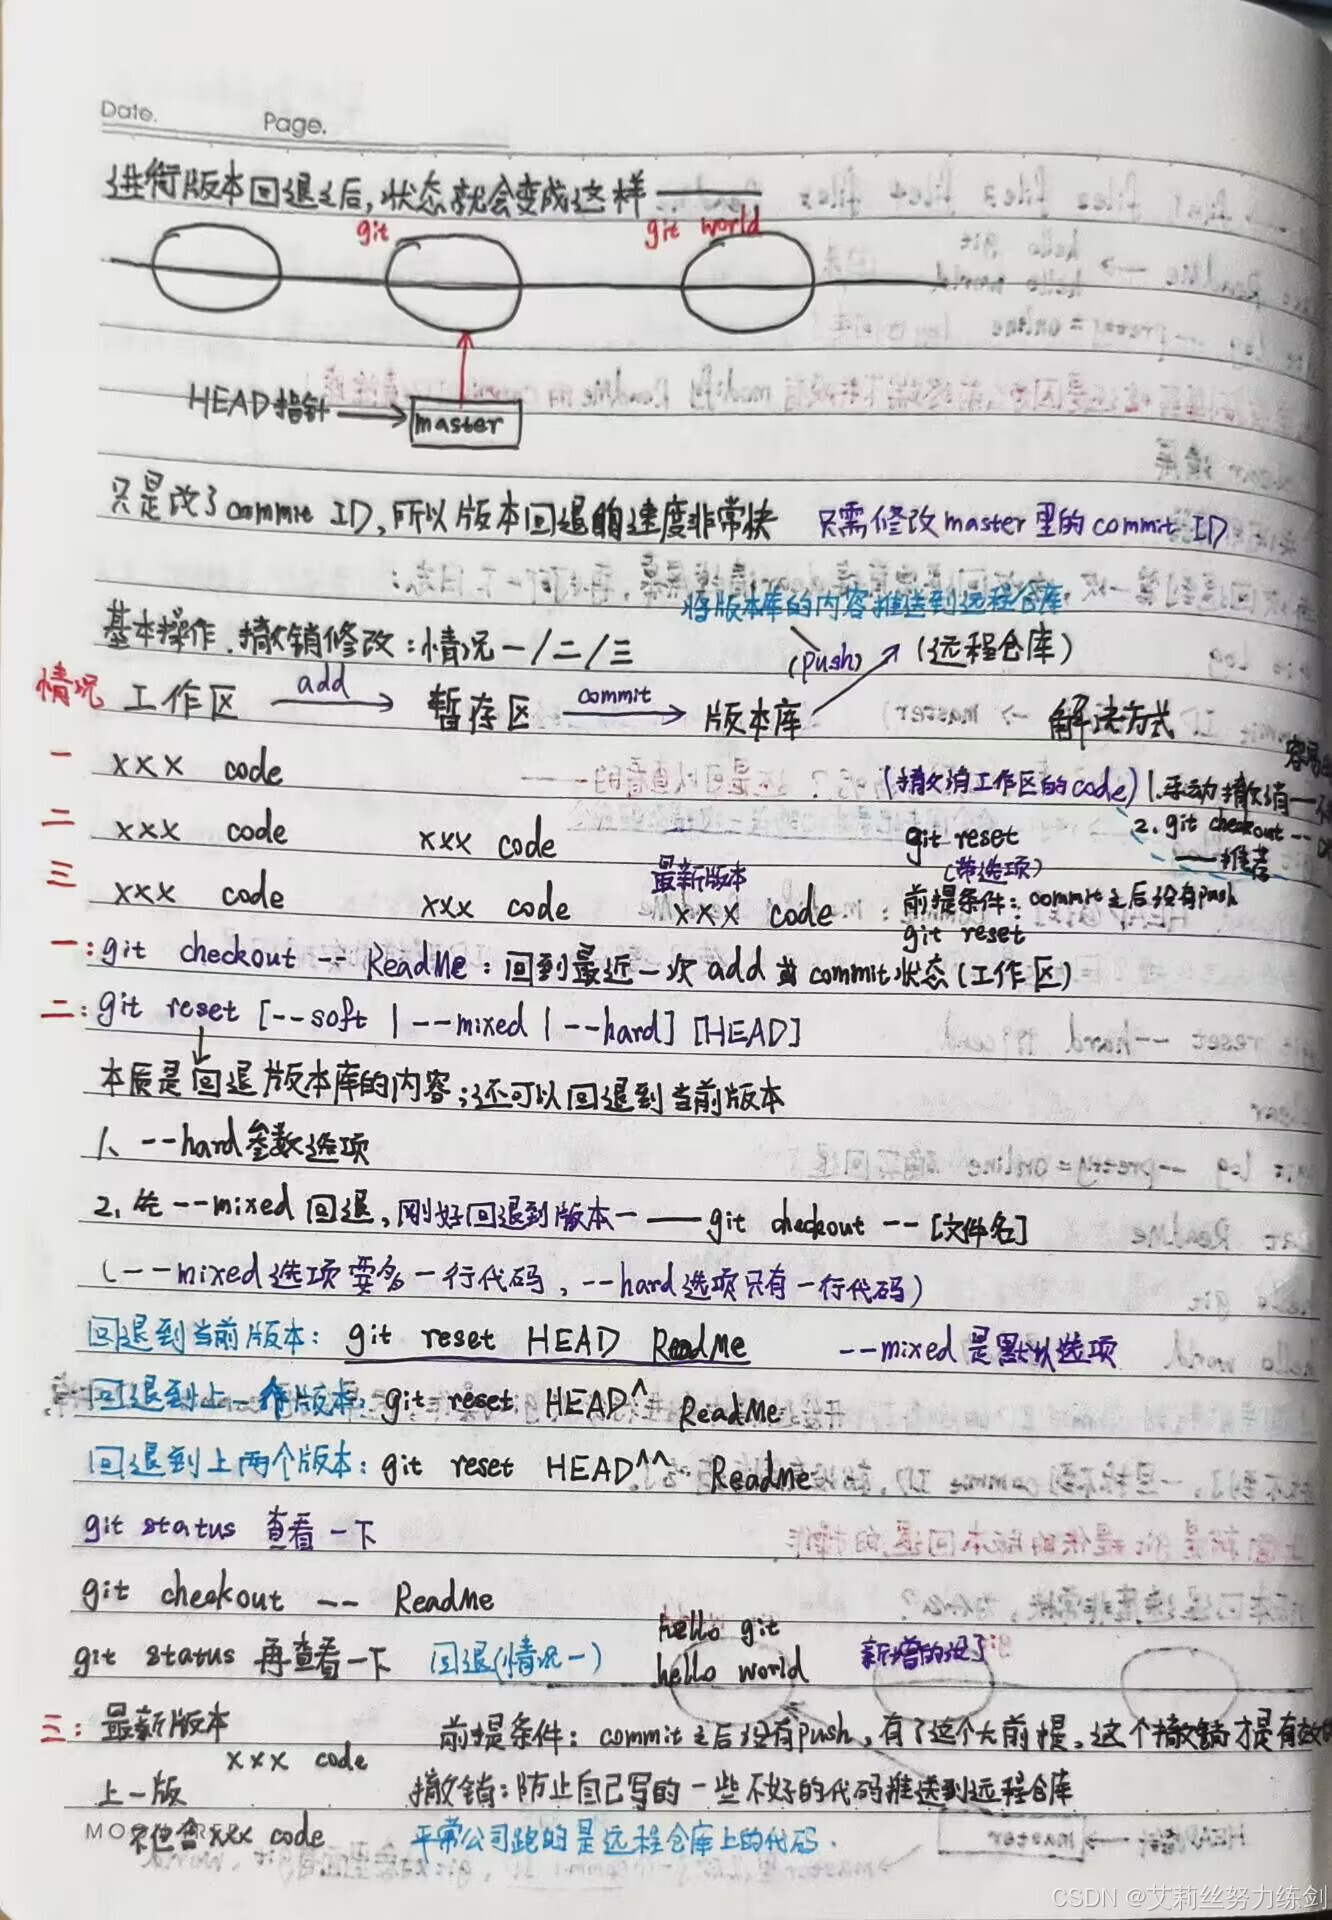 Date.
Page.
进行版本回退之后,状态就会变成这样
git
git world
HEAD指针
master
只是改了commit ID,所以版本回退的速度非常快 只需修改master里的commit ID
将版本库的内容推送到远程仓库
基本操作.撤销修改:情况一/二/三 (push) (远程仓库)
情况 工作区 add 暂存区 commit 版本库 解决方式
一 xxx code (撤消工作区的code) 1.手动撤消一
2. git checkout --
——推荐
二 xxx code xxx code git reset
(带选项)
三 xxx code xxx code 最新版本 xxx code : 前提条件:commit之后没有push
git reset
一:git checkout -- ReadMe:回到最近一次add或commit状态(工作区)
二:git reset [--soft | --mixed | --hard] [HEAD]
本质是回退版本库的内容;还可以回退到当前版本
1、--hard参数选项
2. 先--mixed回退,刚好回退到版本一——git checkout --[文件名]
(--mixed选项要多一行代码,--hard选项只有一行代码)
回退到当前版本: git reset HEAD ReadMe --mixed是默认选项
回退到上一个版本: git reset HEAD^ ReadMe
回退到上两个版本: git reset HEAD^^ ReadMe
git status 查看一下
git checkout -- ReadMe
git status 再查看一下 回退(情况一) hello git
hello world 新增的没了
三: 最新版本 前提条件:commit之后没有push,有了这个大前提,这个撤销才是有效的
xxx code
上一版 撤销:防止自己写的一些不好的代码推送到远程仓库
不包含xxx code 平常公司跑的是远程仓库上的代码.
CSDN @艾莉丝努力练剑